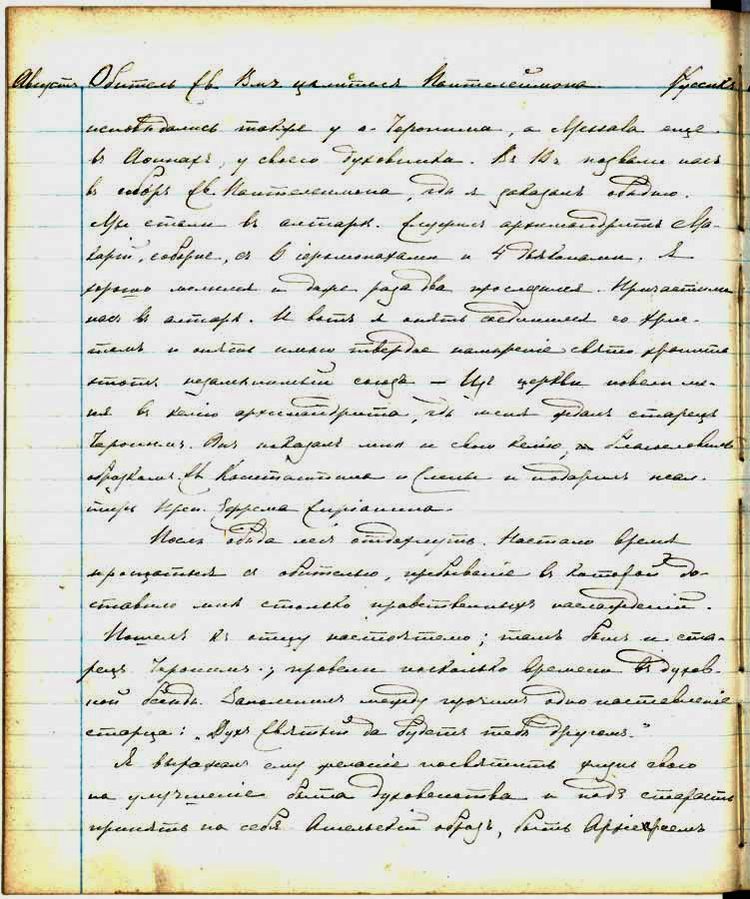 Августъ Обитель Св. Вмч. цѣлителя Пантелеймона. Руссикъ
исповѣдались также у о. Іеронима, а Мессала еще
въ Аѳинахъ, у своего духовника. Въ 10 ч. позвали насъ
въ соборъ Св. Пантелеимона, гдѣ я заказалъ обѣдню.
Мы стали въ алтарѣ. Служилъ архимандритъ Ма-
карій, соборне, съ 6 іеромонахами и 4 дьяконами. Я
хорошо молился и даже раза два прослезился. Причастили
насъ въ алтарѣ. И вотъ я опять соединился со Хрис-
томъ и опять имѣю твердое намѣреніе свято хранить
этотъ незамѣнимый союзъ — Изъ церкви повели ме-
ня въ келію архимандрита, гдѣ меня ждалъ старецъ
Іеронимъ. Онъ показалъ мнѣ и свою келію, благословилъ
образкомъ Св. Константина и Елены и подарилъ псал-
тирь Преп. Ефрема Сиріанина.
Послѣ обѣда легъ отдохнуть. Настало время
прощаться съ обителью, пребываніе въ которой до-
ставило мнѣ столько нравственныхъ наслажденій.
Пошелъ къ отцу настоятелю; тамъ былъ и ста-
рецъ Іеронимъ; провели нѣсколько времени въ духов-
ной бесѣдѣ. Запомнилъ между прочимъ одно наставленіе
старца: „Духъ Святый да будетъ тебѣ другомъ."
Я выражалъ ему желаніе посвятить жизнь свою
на улучшеніе быта духовенства и подъ старость
принять на себя Ангельскій образъ, быть Архіереемъ